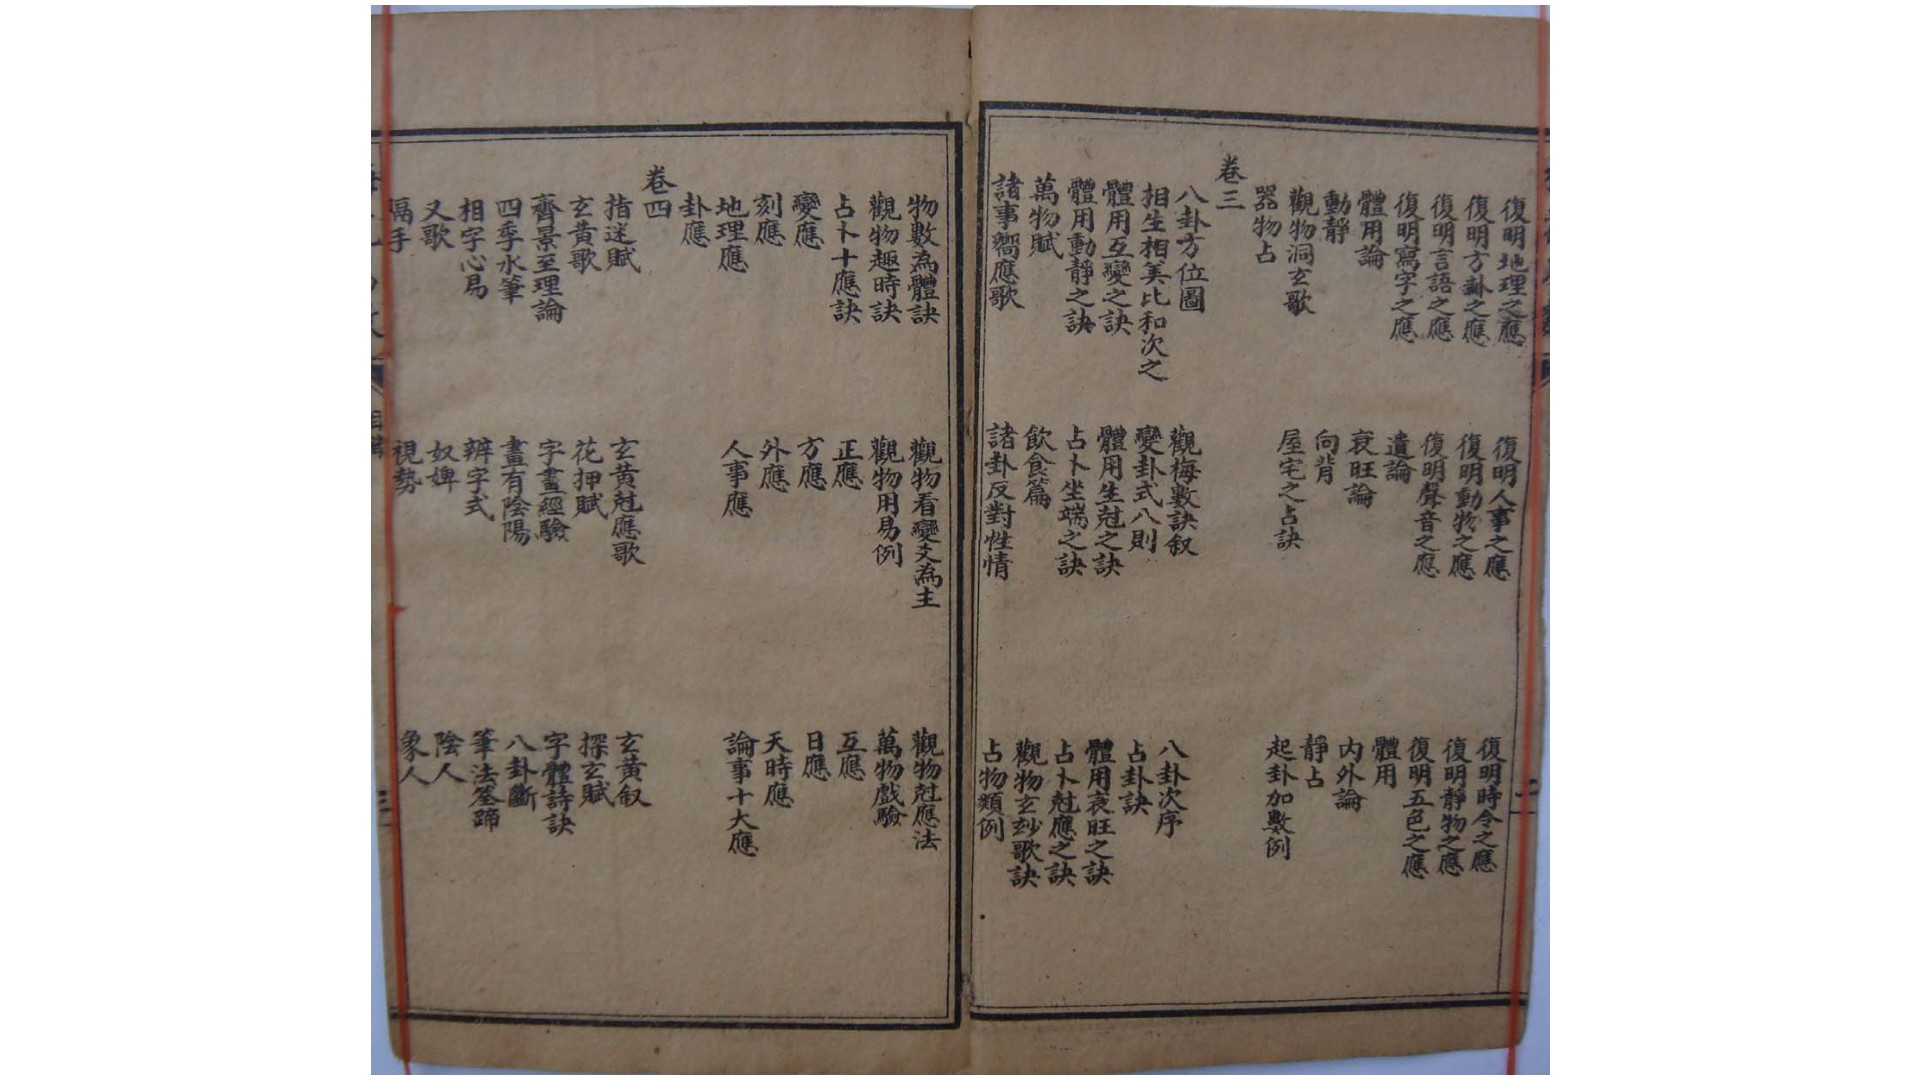 復明地理之應 復明人事之應 復明時令之應
復明方卦之應 復明動物之應 復明靜物之應
復明言語之應 復明聲音之應 復明五色之應
復明寫字之應 遺論 體用
體用論 衰旺論 內外論
動靜 向背 靜占
觀物洞玄歌 屋宅之占訣 起卦加數例
器物占
卷三
八卦方位圖 觀梅數訣叙 八卦次序
相生相美比和次之 變卦式八則 占卦訣
體用互變之訣 體用生尅之訣 體用衰旺之訣
體用動靜之訣 占卜坐端之訣 占卜尅應之訣
萬物賦 飲食篇 觀物玄玅歌訣
諸事嚮應歌 諸卦反對性情 占物類例
物數為體訣 觀物看變爻為主 觀物尅應法
觀物趣時訣 觀物用易例 萬物戲驗
占卜十應訣 正應 互應
變應 方應 日應
刻應 外應 天時應
地理應 人事應 論事十大應
卦應
卷四
指迷賦 玄黄尅應歌 玄黄叙
玄黄歌 花押賦 探玄賦
齊景至理論 字畫經驗 字體詩訣
四季水筆 畫有陰陽 八卦斷
相字心易 辨字式 筆法筌蹄
又歌 奴婢 陰人
隔手 視勢 象人